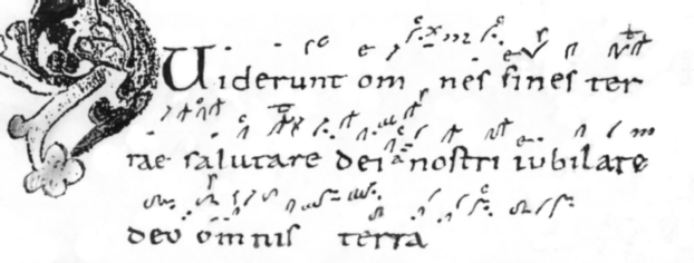 Uiderunt om nes fines ter
rae salutare dei nostri iubilate
deo omnis terra